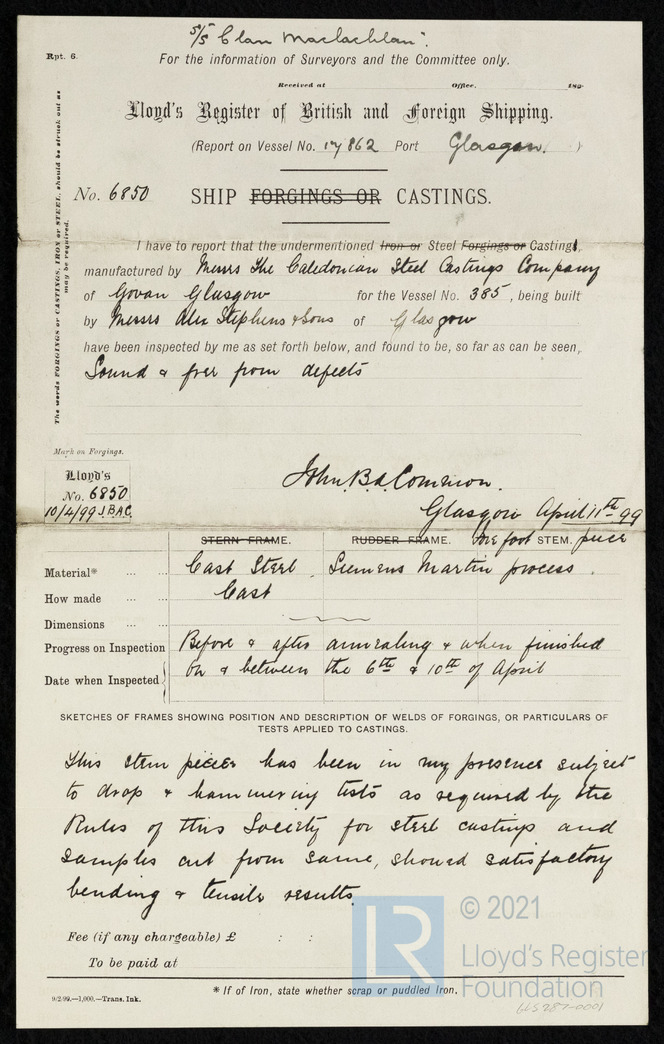 S/S "Clan Maclachlan".
Rpt. 6.
For the information of Surveyors and the Committee only.
Received at Office, 189-
Lloyd's Register of British and Foreign Shipping.
(Report on Vessel No. 17862 Port Glasgow. )
No. 6850 SHIP FORGINGS OR CASTINGS.
The words FORGINGS or CASTINGS, IRON or STEEL, should be struck out as
may be required.
I have to report that the undermentioned Iron or Steel Forgings or Castings,
manufactured by Messrs The Caledonian Steel Castings Company
of Govan Glasgow for the Vessel No. 385, being built
by Messrs Alex Stephens & Sons of Glasgow
have been inspected by me as set forth below, and found to be, so far as can be seen,
Sound & free from defects
Mark on Forgings.
Lloyd's
No. 6850
10/4/99 J.B.A.C.
John. B. A. Common.
Glasgow April 11th 99
STERN FRAME. RUDDER FRAME. Fore foot STEM. piece
Material* ... ... Cast Steel. Siemens Martin process.
How made ... ... Cast
Dimensions ... ...
Progress on Inspection Before & after annealing & when finished
Date when Inspected On & between the 6th & 10th of April
SKETCHES OF FRAMES SHOWING POSITION AND DESCRIPTION OF WELDS OF FORGINGS, OR PARTICULARS OF
TESTS APPLIED TO CASTINGS.
This stem piece has been in my presence subject
to drop & hammering tests as required by the
Rules of this Society for steel castings and
samples cut from same, showed satisfactory
bending & tensile results.
Fee (if any chargeable) £ : :
To be paid at
* If of Iron, state whether scrap or puddled Iron.
9/2/99.—1,000.—Trans. Ink.
LR © 2021
Lloyd's Register
Foundation
GLS287-0001